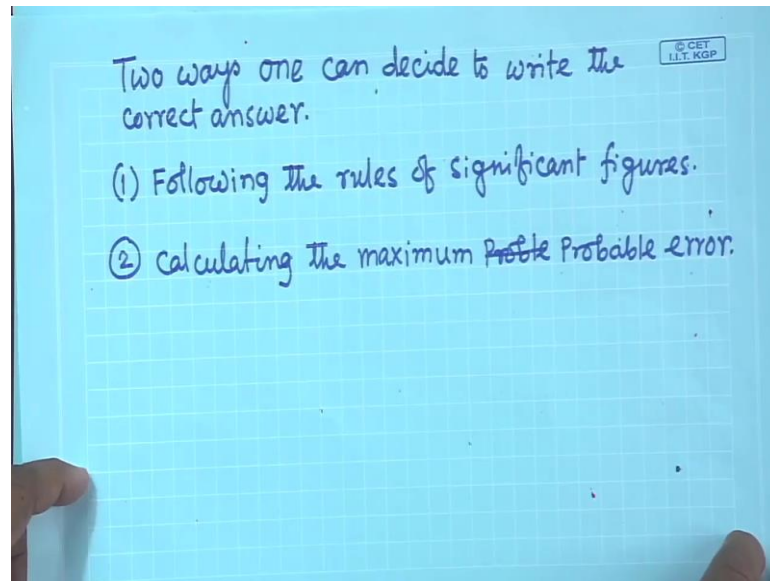 Two ways one can decide to write the
© CET
I.I.T. KGP
correct answer.
(1) Following the rules of significant figures.
(2) Calculating the maximum Proble Probable error.